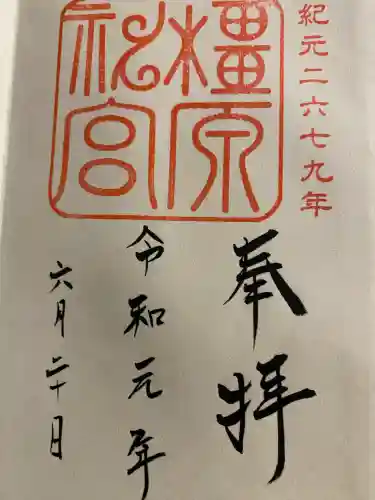 紀元二六七九年
橿原神宮
奉拝
令和元年
六月二十日